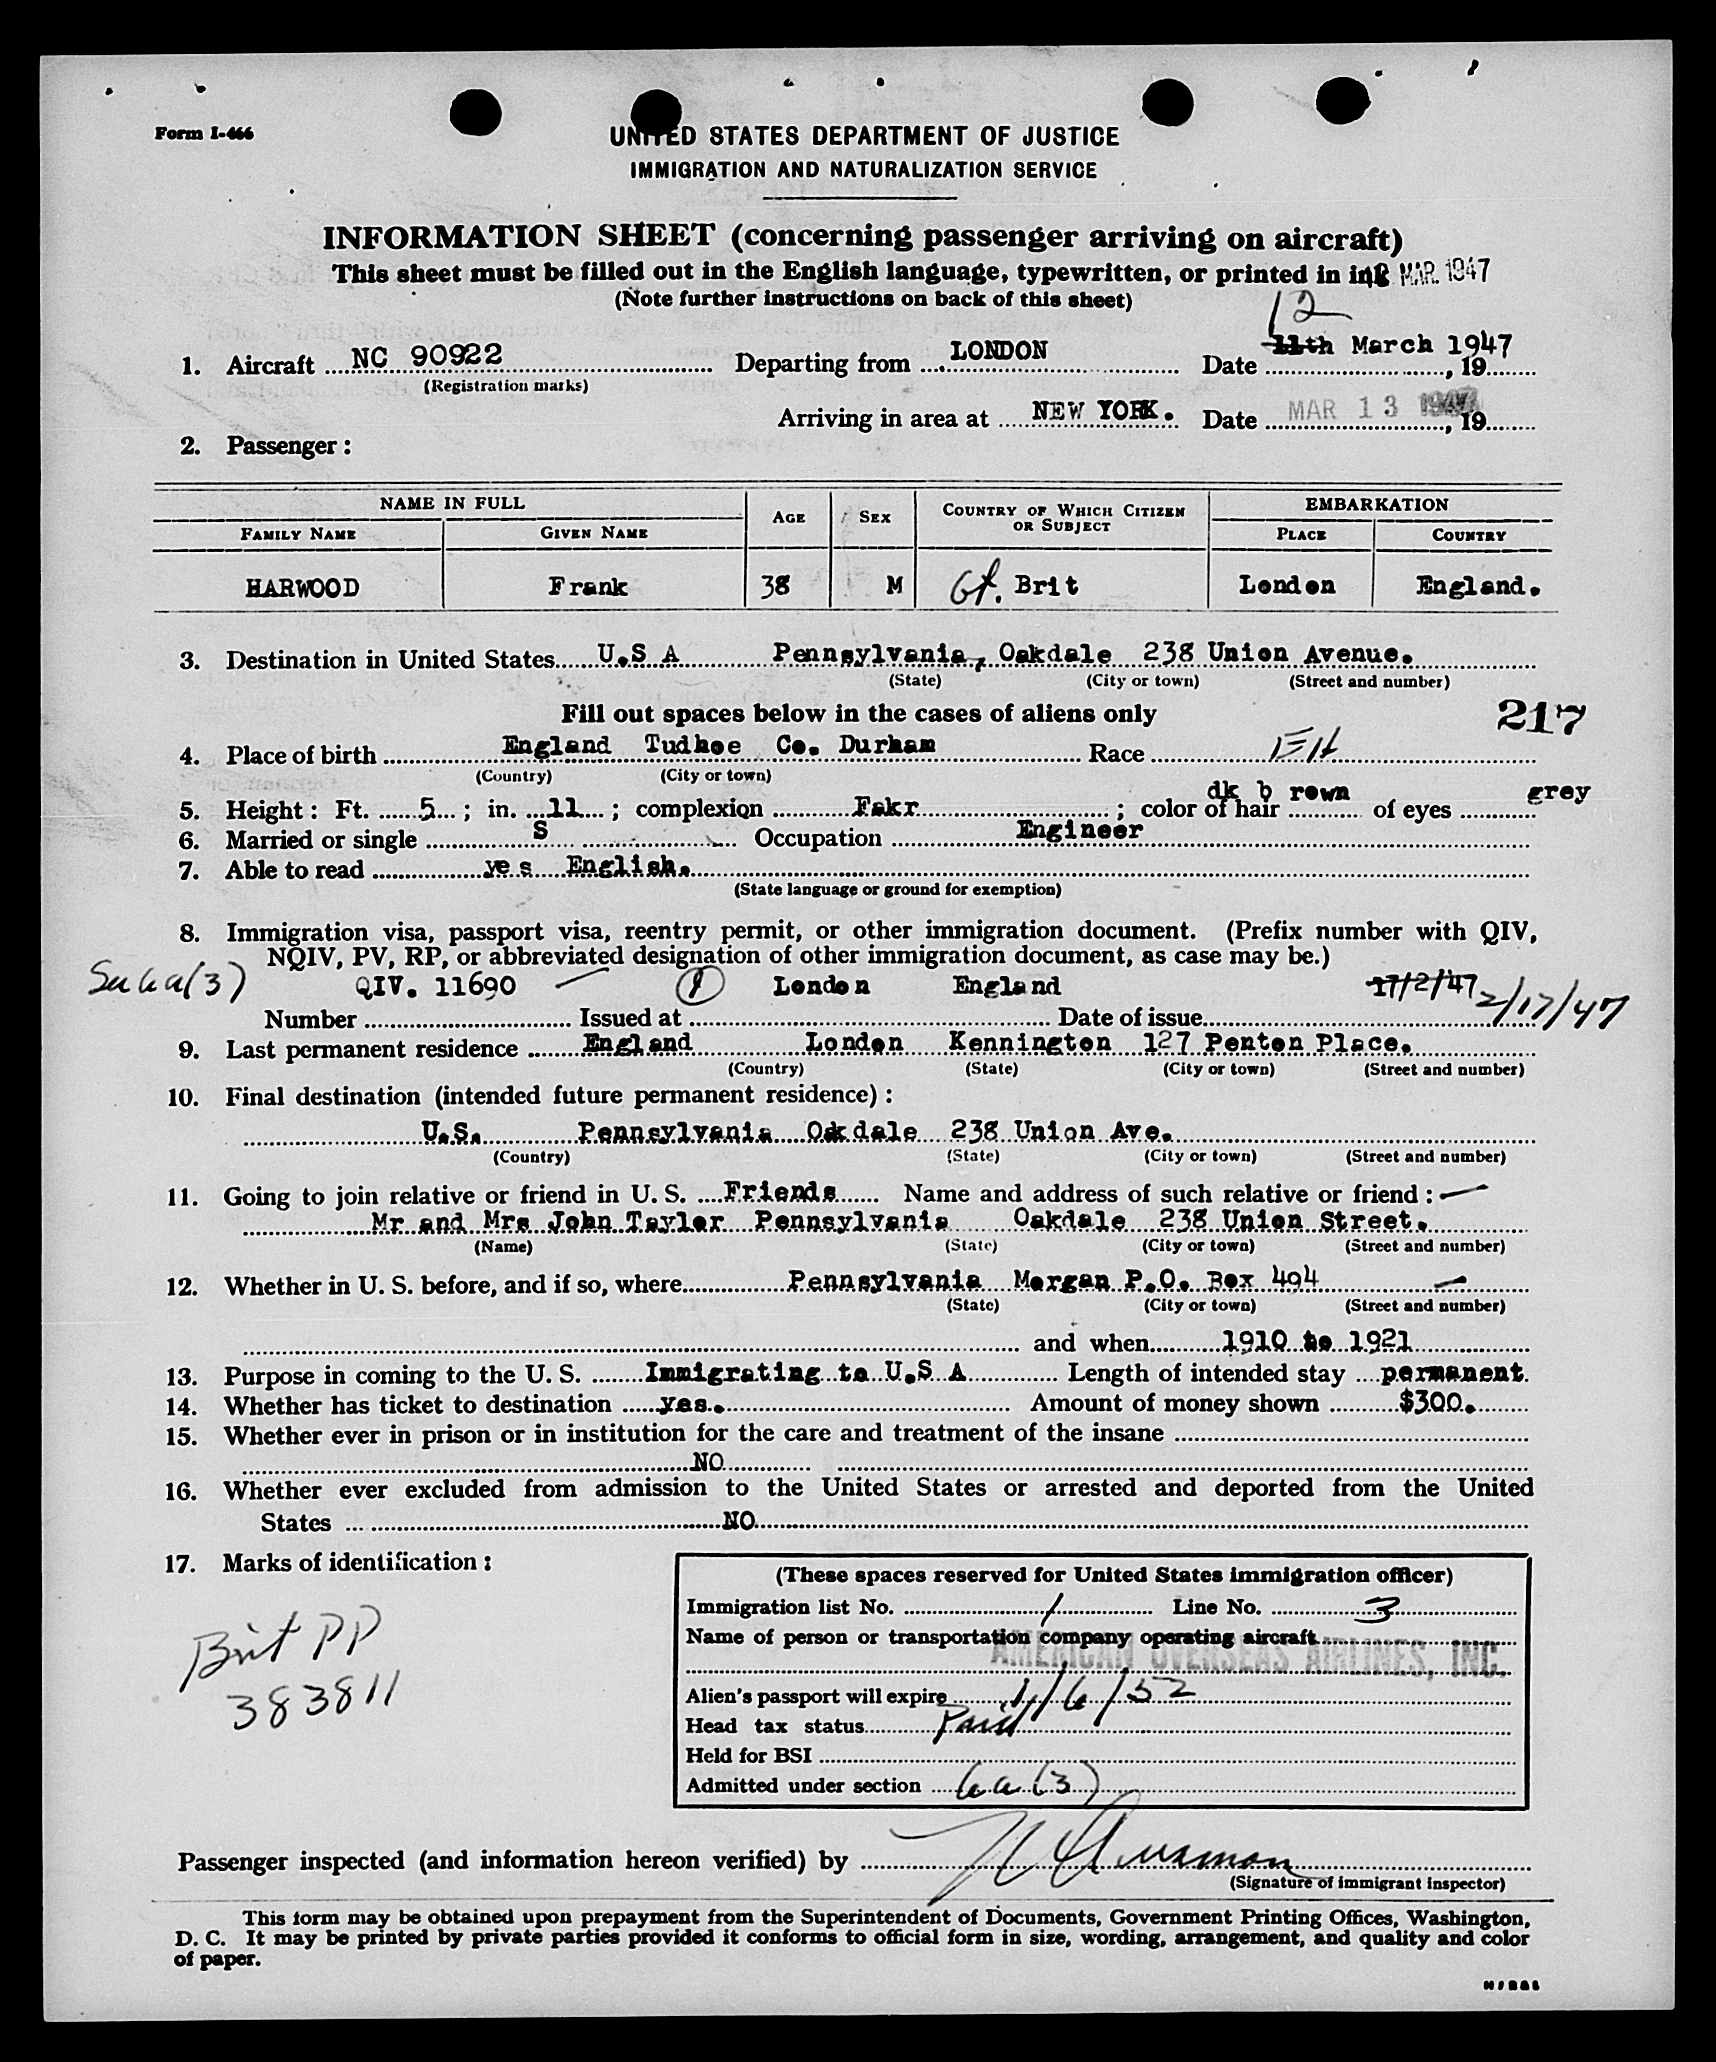 Form I-466
UNITED STATES DEPARTMENT OF JUSTICE
IMMIGRATION AND NATURALIZATION SERVICE
INFORMATION SHEET (concerning passenger arriving on aircraft)
This sheet must be filled out in the English language, typewritten, or printed in ink MAR. 1947
(Note further instructions on back of this sheet)
12
1. Aircraft NC 90922 Departing from LONDON Date 11th March 1947, 19
(Registration marks)
Arriving in area at NEW YORK. Date MAR 13 1947, 19
2. Passenger :
NAME IN FULL AGE SEX COUNTRY OF WHICH CITIZEN OR SUBJECT EMBARKATION
FAMILY NAME GIVEN NAME PLACE COUNTRY
HARWOOD Frank 38 M Gt. Brit London England.
3. Destination in United States U.S A Pennsylvania, Oakdale 238 Union Avenue.
(State) (City or town) (Street and number)
Fill out spaces below in the cases of aliens only 217
4. Place of birth England Tudhoe Co. Durham Race EH
(Country) (City or town)
5. Height : Ft. 5 ; in. 11 ; complexion Fakr ; color of hair dk b rown of eyes grey
6. Married or single S Occupation Engineer
7. Able to read ye s English.
(State language or ground for exemption)
8. Immigration visa, passport visa, reentry permit, or other immigration document. (Prefix number with QIV,
NQIV, PV, RP, or abbreviated designation of other immigration document, as case may be.)
6a(3) QIV. 11690 London England 17/2/47 2/17/47
Number Issued at Date of issue
9. Last permanent residence England London Kennington 127 Penton Place.
(Country) (State) (City or town) (Street and number)
10. Final destination (intended future permanent residence) :
U.S. Pennsylvania Oakdale 238 Union Ave.
(Country) (State) (City or town) (Street and number)
11. Going to join relative or friend in U. S. Friends Name and address of such relative or friend :
Mr and Mrs John Taylor Pennsylvania Oakdale 238 Union Street.
(Name) (State) (City or town) (Street and number)
12. Whether in U. S. before, and if so, where Pennsylvania Morgan P.O. Box 494
(State) (City or town) (Street and number)
and when 1910 to 1921
13. Purpose in coming to the U. S. Immigrating to U.S A Length of intended stay permanent
14. Whether has ticket to destination yes. Amount of money shown $300.
15. Whether ever in prison or in institution for the care and treatment of the insane
NO
16. Whether ever excluded from admission to the United States or arrested and deported from the United
States NO
17. Marks of identification :
Brit PP
383811
(These spaces reserved for United States immigration officer)
Immigration list No. 1 Line No. 3
Name of person or transportation company operating aircraft
AMERICAN OVERSEAS AIRLINES, INC.
Alien's passport will expire 1/6/52
Head tax status Paid
Held for BSI
Admitted under section 6a(3)
Passenger inspected (and information hereon verified) by
(Signature of immigrant inspector)
This form may be obtained upon prepayment from the Superintendent of Documents, Government Printing Offices, Washington,
D. C. It may be printed by private parties provided it conforms to official form in size, wording, arrangement, and quality and color
of paper.